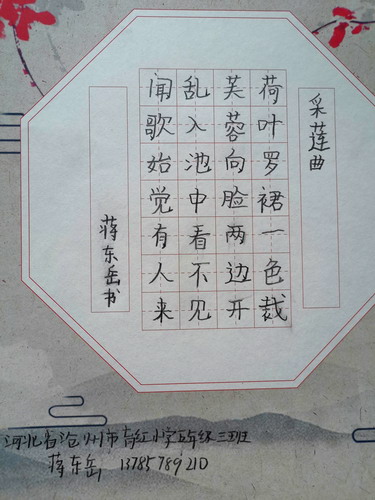 采莲曲
荷叶罗裙一色裁
芙蓉向脸两边开
乱入池中看不见
闻歌始觉有人来
蒋东岳书
河北省沧州市育红小学五年级三班
蒋东岳 13785789210